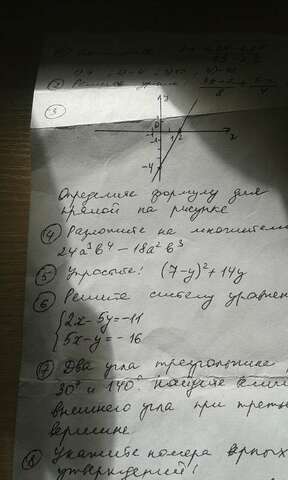 ② Решите
③
y
0
1 2
x
-4
Определите формулу для
прямой на рисунке
④ Разложите на множители
24a³b⁴ − 18a²b³
⑤ Упростите! (7-y)² + 14y
⑥ Решите систему уравнен
{2x - 5y = -11
5x - y = -16
⑦ Два угла треугольника
30° и 140° Найдите
внешнего угла при треть
вершине
⑧ Укажите номера верных
утверждений!